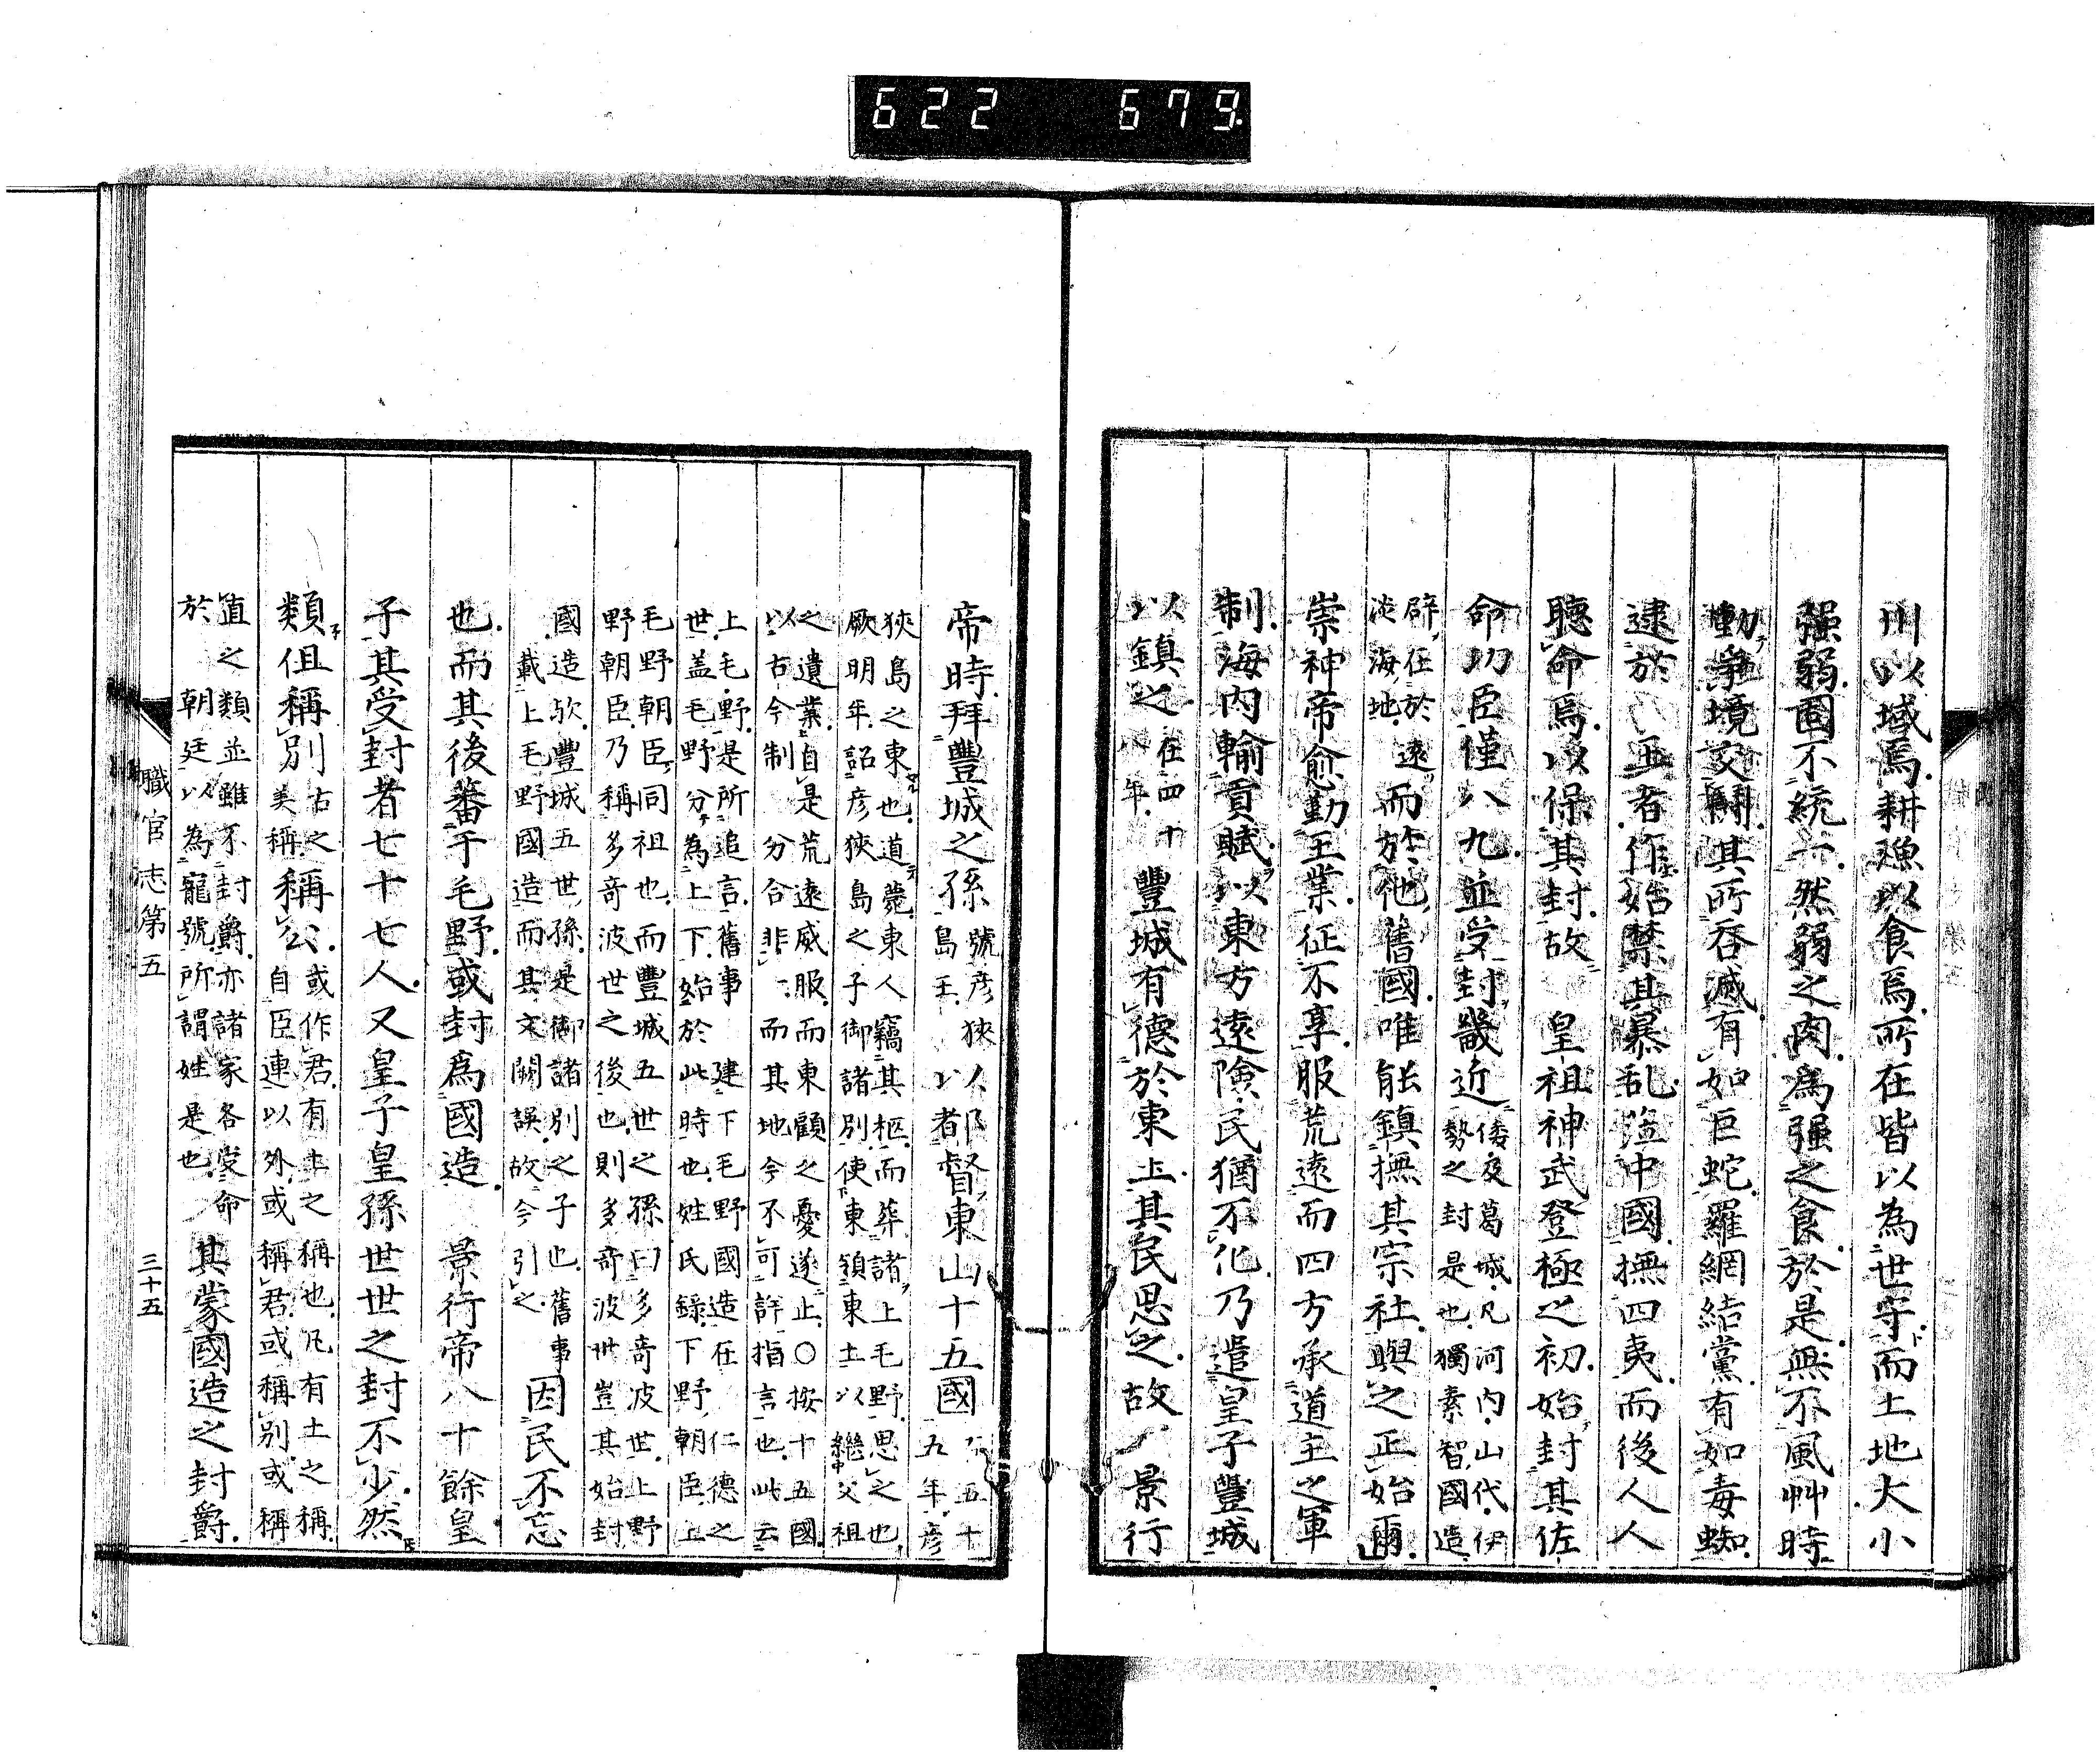 622 679
川以域焉耕漁以食焉所在皆以為世守而土地大小
强弱固不統一然弱之肉為强之食於是無不風艸時
動爭境交鬪其所吞滅有如巨蛇羅網結黨有如毒蜘
逮於王者作始禁其暴乱蒞中國撫四夷而後人人
聴命焉以保其封故 皇祖神武登極之初始封其佐
命功臣僅八九並受封畿近倭及葛城凡河内山代伊
勢之封是也獨素智國造
辟在於遠
淡海地而於他舊國唯能鎮撫其宗社與之正始爾
崇神帝愈勤王業征不享服荒遠而四方承道主之軍
制海内輸貢賦以東方遠険民猶不化乃遣皇子豐城
以鎮之在四十
八年豐城有德於東土其民思之故 景行
帝時拜豐城之孫號彦狹
島王以都督東山十五國五十
五年彦
狹島之東也道薨東人竊其柩而葬諸上毛野思之也
厥明年詔彦狹島之子御諸別使東領東土以繼父祖
之遺業自是荒遠威服而東顧之憂遂止〇按十五國
以古今制 分合非一而其地今不可詳指言也此云
上毛野是所追言舊事 建下毛野國造在 仁德之
世盖毛野分為上下始於此時也姓氏錄下野朝臣上
毛野朝臣同祖也而豐城五世之孫曰多奇波世上野
野朝臣乃稱多奇波世之後也則多奇波世豈其始封
國造欤豐城五世孫是御諸別之子也舊事
載上毛野國造而其文闕誤故今引之因民不忘
也而其後蕃于毛野或封為國造 景行帝八十餘皇
子其受封者七十七人又皇子皇孫世世之封不少然
類但稱別古之
美稱稱公或作君有土之稱也凡有土之稱
自臣連以外或稱君或稱別或稱
直之類並雖不封爵亦諸家各受命
於 朝廷以為寵號所謂姓是也其蒙國造之封爵
職官志第五
三十五